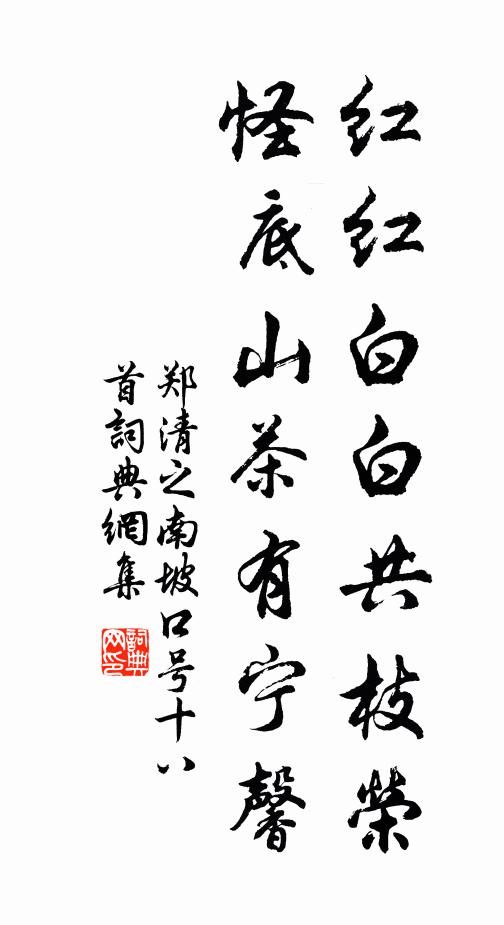 红红白白共枝榮
怪底山茶有宁馨
郑清之南坡口号十八
首詞典網集
詞典网印